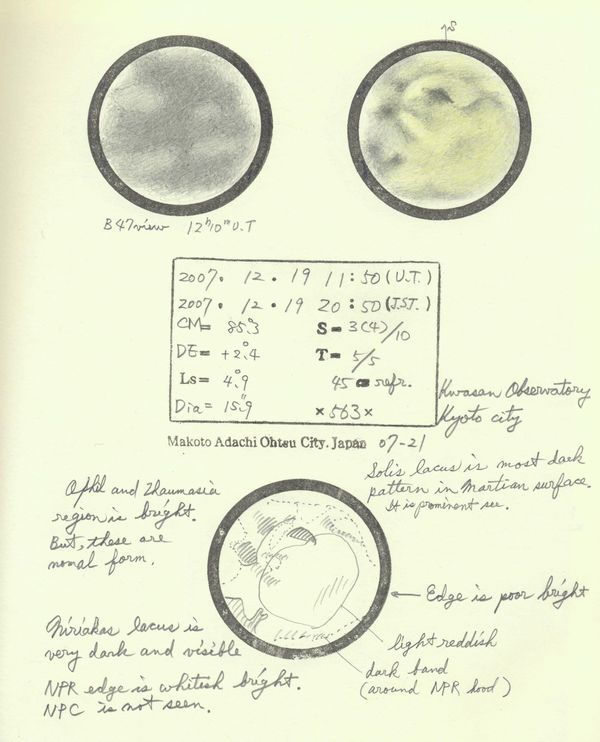 S
B47 view 12h10m U.T
2007. 12. 19 11:50 (U.T.)
2007. 12. 19 20:50 (J.S.T.)
CM= 85.°3 S= 3(4)/10
DE= +2.°4 T= 5/5
Ls= 4.°9 45 refr.
Dia= 15."9 ×563×
Kwasan Observatory
Kyoto city
Makoto Adachi Ohtsu City. Japan 07-21
Solis lacus is most dark
pattern in Martian surface.
It is prominent see.
Ophil and Thaumasia
region is bright.
But, these are
nomal form.
Edge is poor bright
Niriakas lacus is
very dark and visible
light reddish
dark band
(around NPR hood)
NPR edge is whitish bright.
NPC is not seen.